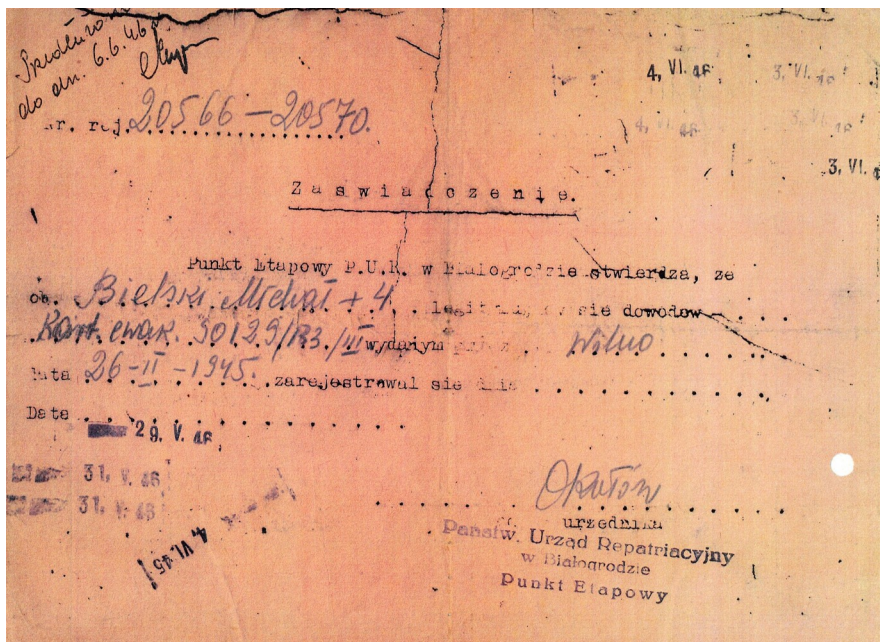 do dn. 6.6.46
4. VI. 46
3. VI.
nr. rej. 20566-20570.
4. VI. 46
3. VI. 46
3. VI.
Zaswiadczenie.
Punkt Etapowy P.U.R. w Bialogrodzie stwierdza, ze
ob. Bielski Michał + 4 legit sie dowodem
Kart. ewak. 30129/R3/III wydanym przez Wilno
Data 26-II-1945. zarejestrowal sie dnia
Data
29. V. 46
31. V. 46
31. V. 46
4. VI. 45
urzednika
Państw. Urząd Repatriacyjny
w Białogrodzie
Punkt Etapowy